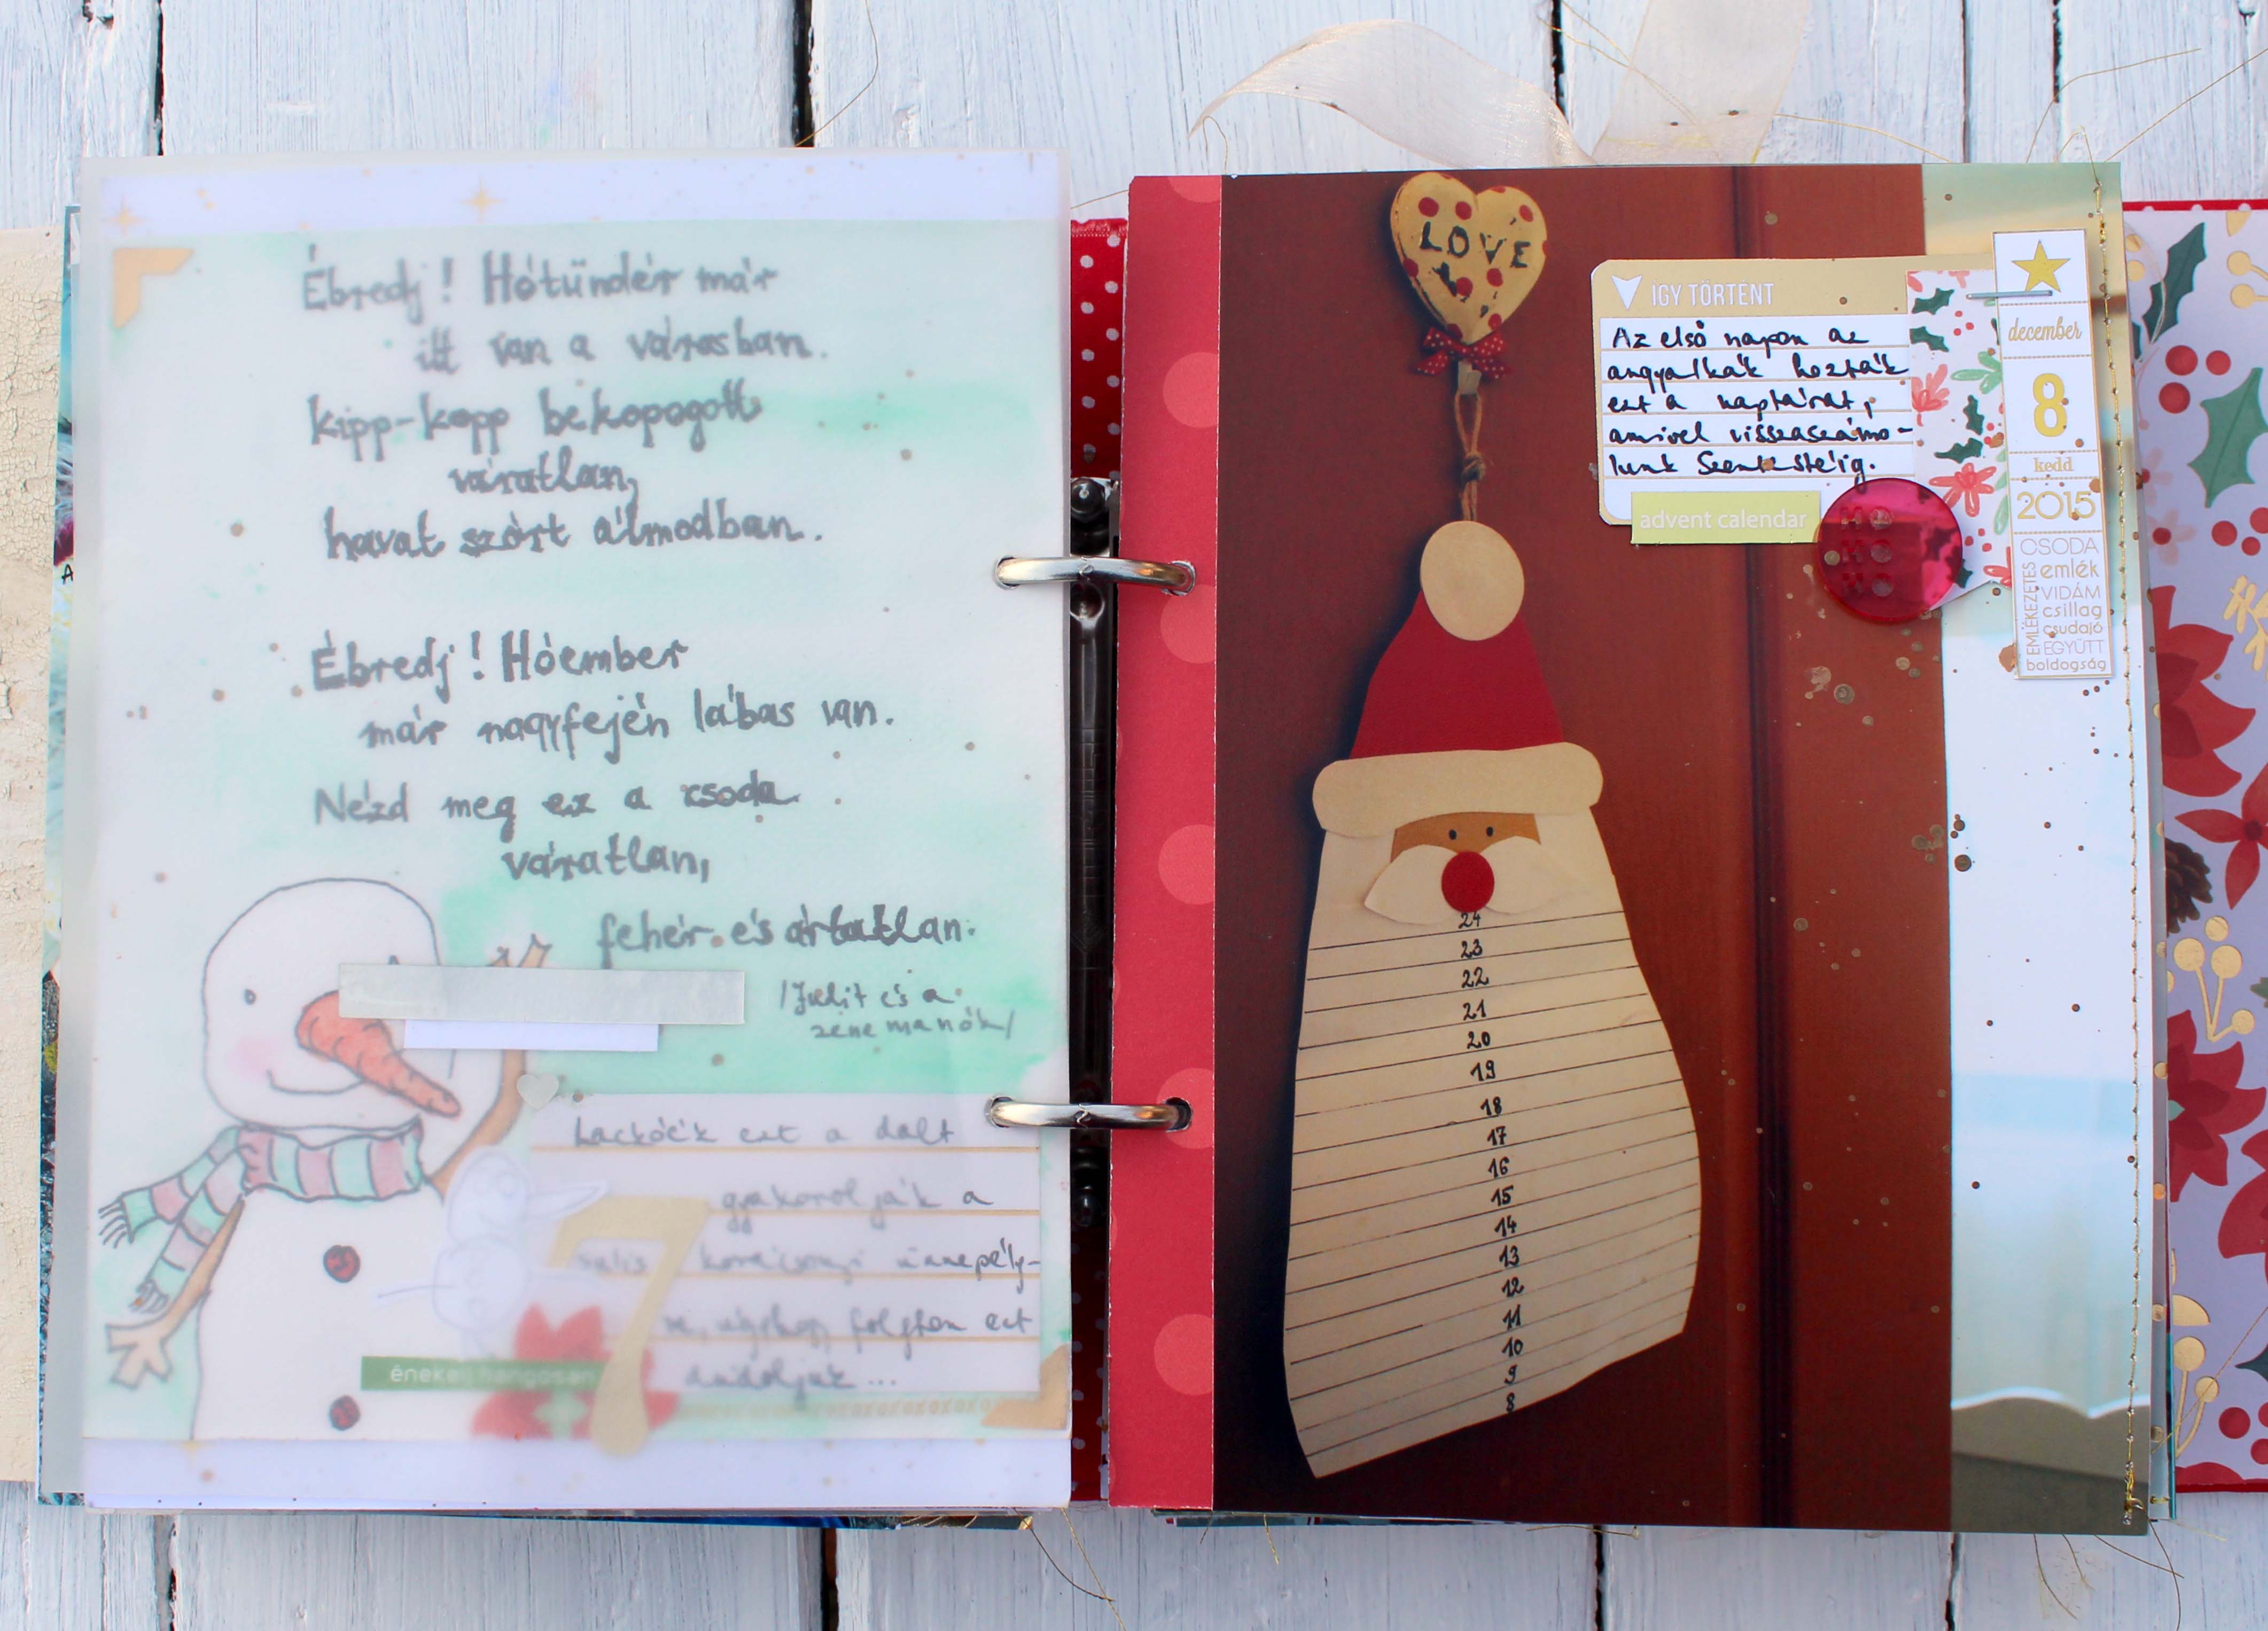 Ébredj! Hótündér már
itt van a városban.
kipp-kopp bekopogott
váratlan,
havat szórt álmodban.
Ébredj! Hóember
már nagyfején lábas van.
Nézd meg ez a csoda
váratlan,
fehér és ártatlan.
/Julit és a
zenemanók/
Lackóék ezt a dalt
gyakorolják a
karácsonyi ünnepély-
re, úgyhogy folyton ezt
dúdoljuk...
7
énekelj hangosan
LOVE
ÍGY TÖRTÉNT
Az első napon az
angyalkák hozták
ezt a naptárat,
amivel visszaszámo-
lunk Szentestéig.
advent calendar
HO
HO
HO
december
8
kedd
2015
CSODA
EMLÉKEZETES
emlék
VIDÁM
csillag
csudajó
EGYÜTT
boldogság
24
23
22
21
20
19
18
17
16
15
14
13
12
11
10
9
8
A